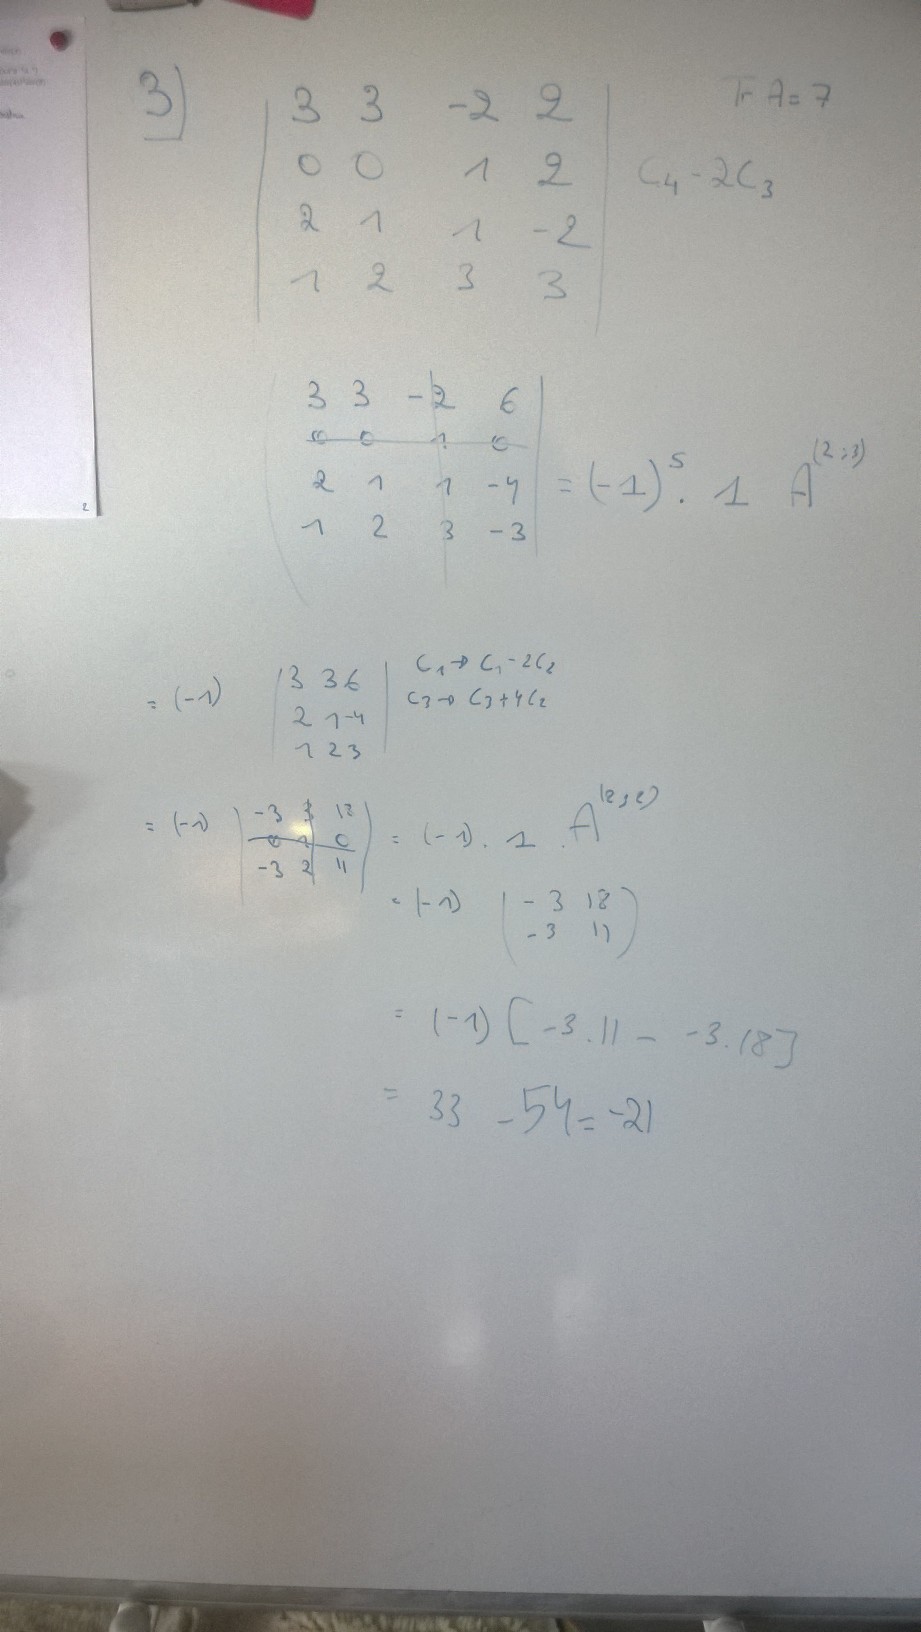 3)
3 3 -2 2
0 0 1 2
2 1 1 -2
1 2 3 3
Tr A = 7
C4 - 2C3
3 3 -2 6
0 0 1 0
2 1 1 -4
1 2 3 -3
= (-1)^5 . 1 A^(2;3)
= (-1)
3 3 6
2 1 -4
1 2 3
C1 → C1 - 2C2
C3 → C3 + 4C2
= (-1)
-3 3 18
0 1 0
-3 2 11
= (-1) . 1 . A^(2;2)
= (-1)
-3 18
-3 11
= (-1) [ -3.11 - -3.18]
= 33 - 54 = -21
2